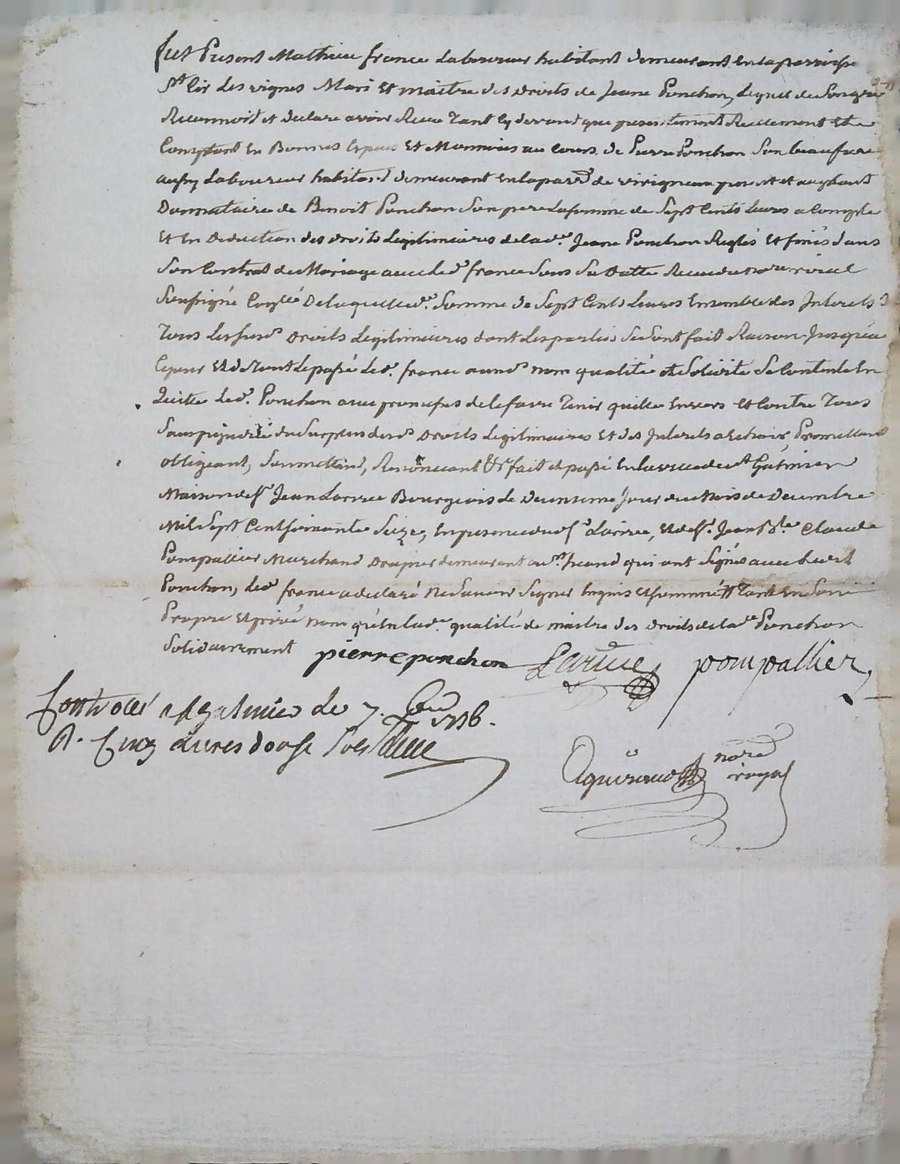 fut Present Mathieu france Laboureur habitant demeurant en la parroisse
St Cir Les vignes Mari Et maitre des droits de Jeane Ponchon, Lequel de Son gré
Reconnoit et declare avoir Receu Tant Cy devant que presentement Reellement Et
Comptant En Bonnes Especes Et Monnoies au Cours, de Pierre Ponchon Son beaufrere
aussy Laboureur habitant demeurant En la parr. de virigneux present et acceptant
Donnataire de Benoit Ponchon Son pere La somme de Sept Cents Livres a Compte
Et En Deduction des droits Legitimaires de lad. Jeane Ponchon Reglés Et fixés dans
Son Contrat de Mariage avec led. france Sous Sa Datte Receu du nore roial
Soussigné De laquelle d. Somme de Sept Cents Livres Ensemble des Interets
Tous Les Susd. Droits Legitimaires dont Les parties Se Sont fait Raison Jusques a
Ce jour Et du tout Le passé led. france aud. nom qualité Se Contente En
Quite led. Ponchon avec promesses de Le faire Tenir quitte Envers et Contre Tous
Sans prejudice du Surplus desd. Droits Legitimaires Et des Interets a Echoir, Promettant
obligeant, Soumettant, Renonceant &c fait et passé En la ville de St Galmier
Maison de Sr. Jean Larivee Bourgeois Le Deuxieme Jour du Mois de Decembre
Mil Sept Cent Soixante Seize, En presence dud. Sr. Larivee, Et de Sr. Jean Bte. Claude
Pompallier Marchand Drapier demeurant qui ont Signés avec Led.
Ponchon, led. france a declaré Ne Savoir Signer Enquis et sommé Tant En Son
Propre Et privé nom qu'en lad. qualité de maitre des droits de lad. Ponchon
Solidairement pierre ponchon Larivee pompallier
Controllé a St galmier Le 7. 1776.
R. Cinq Livres douze Sols
nore
royal